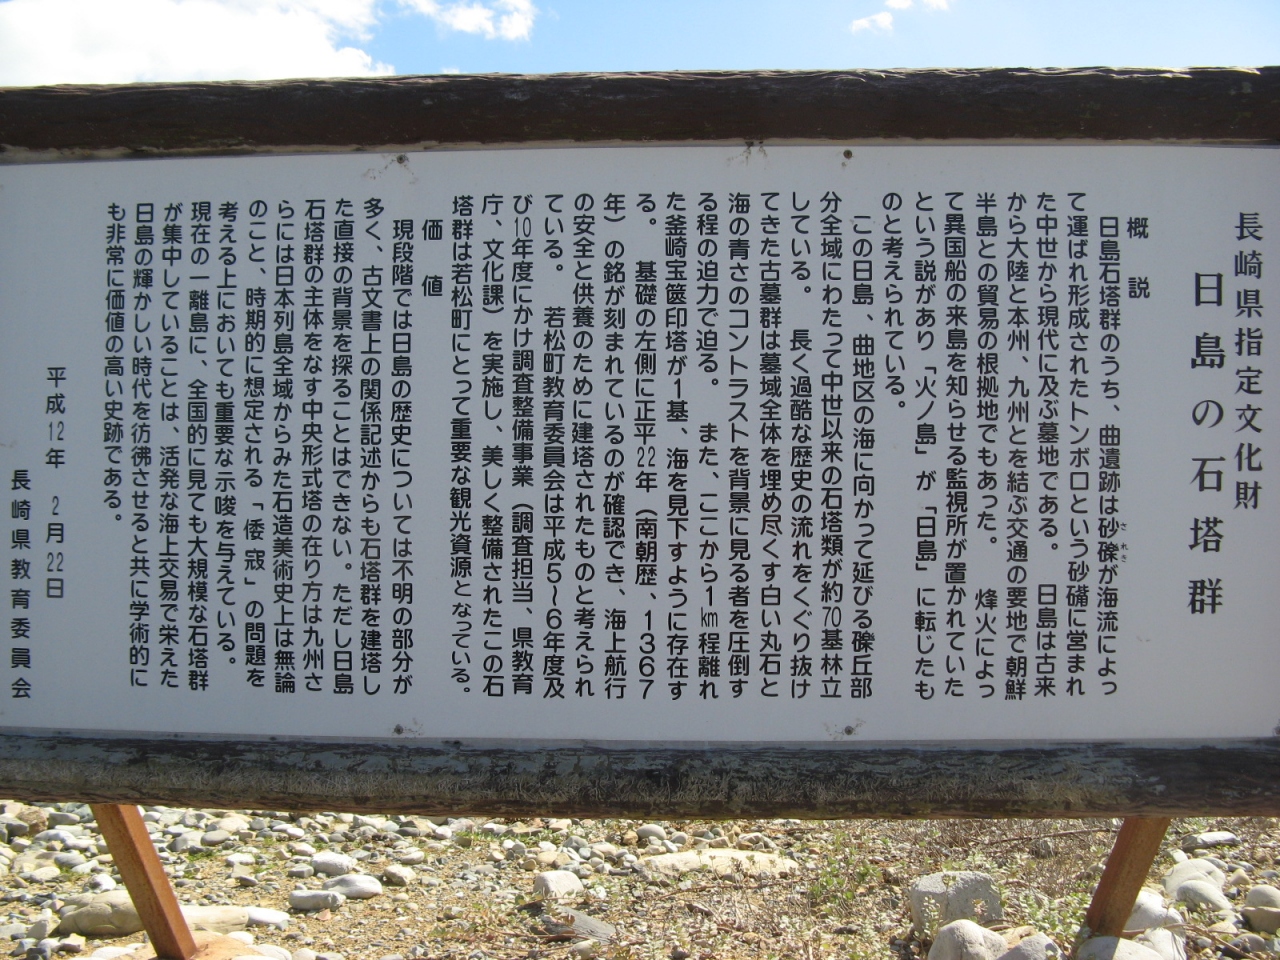 長崎県指定文化財
日島の石塔群
概説
日島石塔群のうち、曲遺跡は砂礫が海流によっ
されき
て運ばれ形成されたトンボロという砂礒に営まれ
た中世から現代に及ぶ墓地である。 日島は古来
から大陸と本州、九州とを結ぶ交通の要地で朝鮮
半島との貿易の根拠地でもあった。 烽火によっ
て異国船の来島を知らせる監視所が置かれていた
という説があり「火ノ島」が「日島」に転じたも
のと考えられている。
この日島、曲地区の海に向かって延びる礫丘部
分全域にわたって中世以来の石塔類が約70基林立
している。 長く過酷な歴史の流れをくぐり抜け
てきた古墓群は墓域全体を埋め尽くす白い丸石と
海の青さのコントラストを背景に見る者を圧倒す
る程の迫力で迫る。 また、ここから1km程離れ
た釜崎宝篋印塔が1基、海を見下すように存在す
る。 基礎の左側に正平22年（南朝歴、1367
年）の銘が刻まれているのが確認でき、海上航行
の安全と供養のために建塔されたものと考えられ
ている。 若松町教育委員会は平成5～6年度及
び10年度にかけ調査整備事業（調査担当、県教育
庁、文化課）を実施し、美しく整備されたこの石
塔群は若松町にとって重要な観光資源となっている。
価値
現段階では日島の歴史については不明の部分が
多く、古文書上の関係記述からも石塔群を建塔し
た直接の背景を探ることはできない。ただし日島
石塔群の主体をなす中央形式塔の在り方は九州さ
らには日本列島全域からみた石造美術史上は無論
のこと、時期的に想定される「倭寇」の問題を
考える上においても重要な示唆を与えている。
現在の一離島に、全国的に見ても大規模な石塔群
が集中していることは、活発な海上交易で栄えた
日島の輝かしい時代を彷彿させると共に学術的に
も非常に価値の高い史跡である。
平成12年 2月22日
長崎県教育委員会